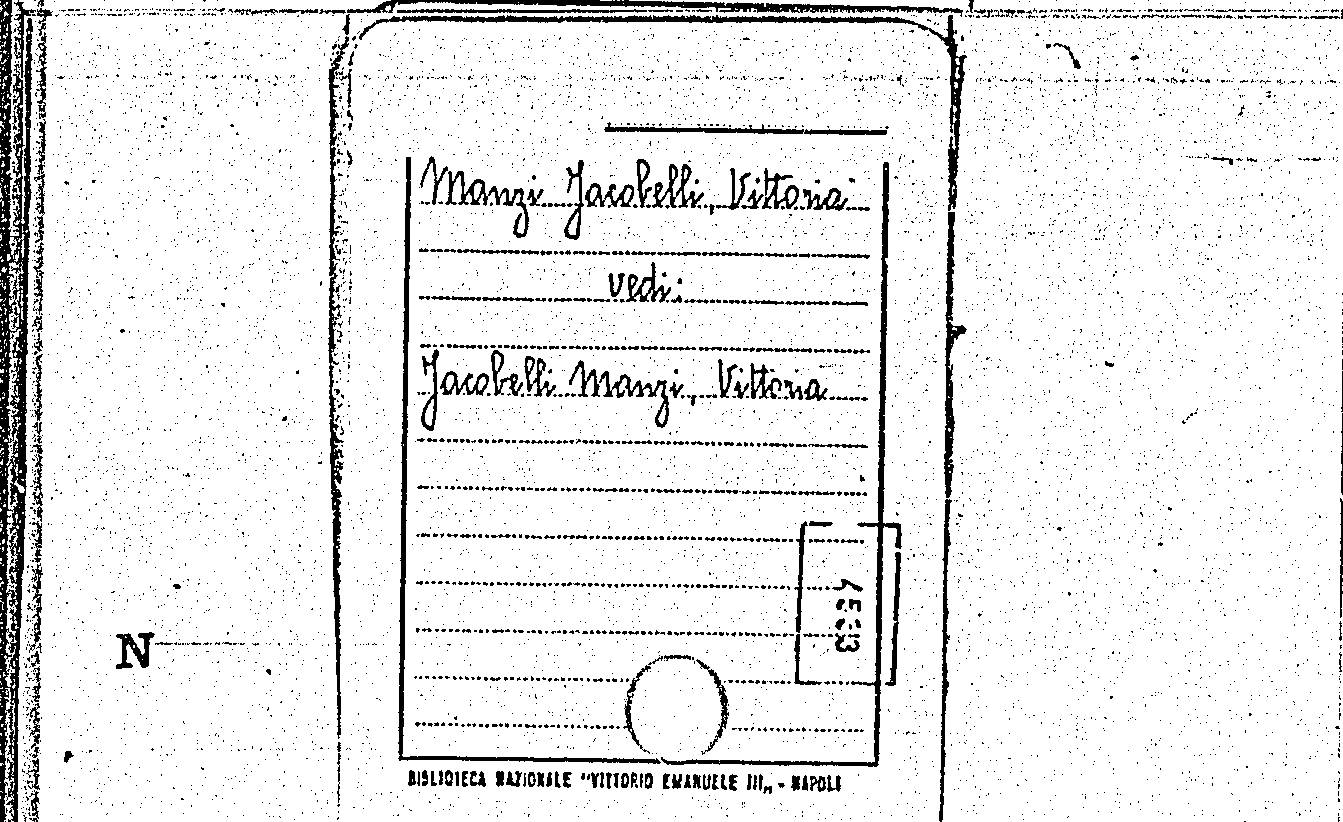 Manzi Jacobelli, Vittoria
vedi:
Jacobelli Manzi, Vittoria
N
BIBLIOTECA NAZIONALE "VITTORIO EMANUELE III„ - NAPOLI